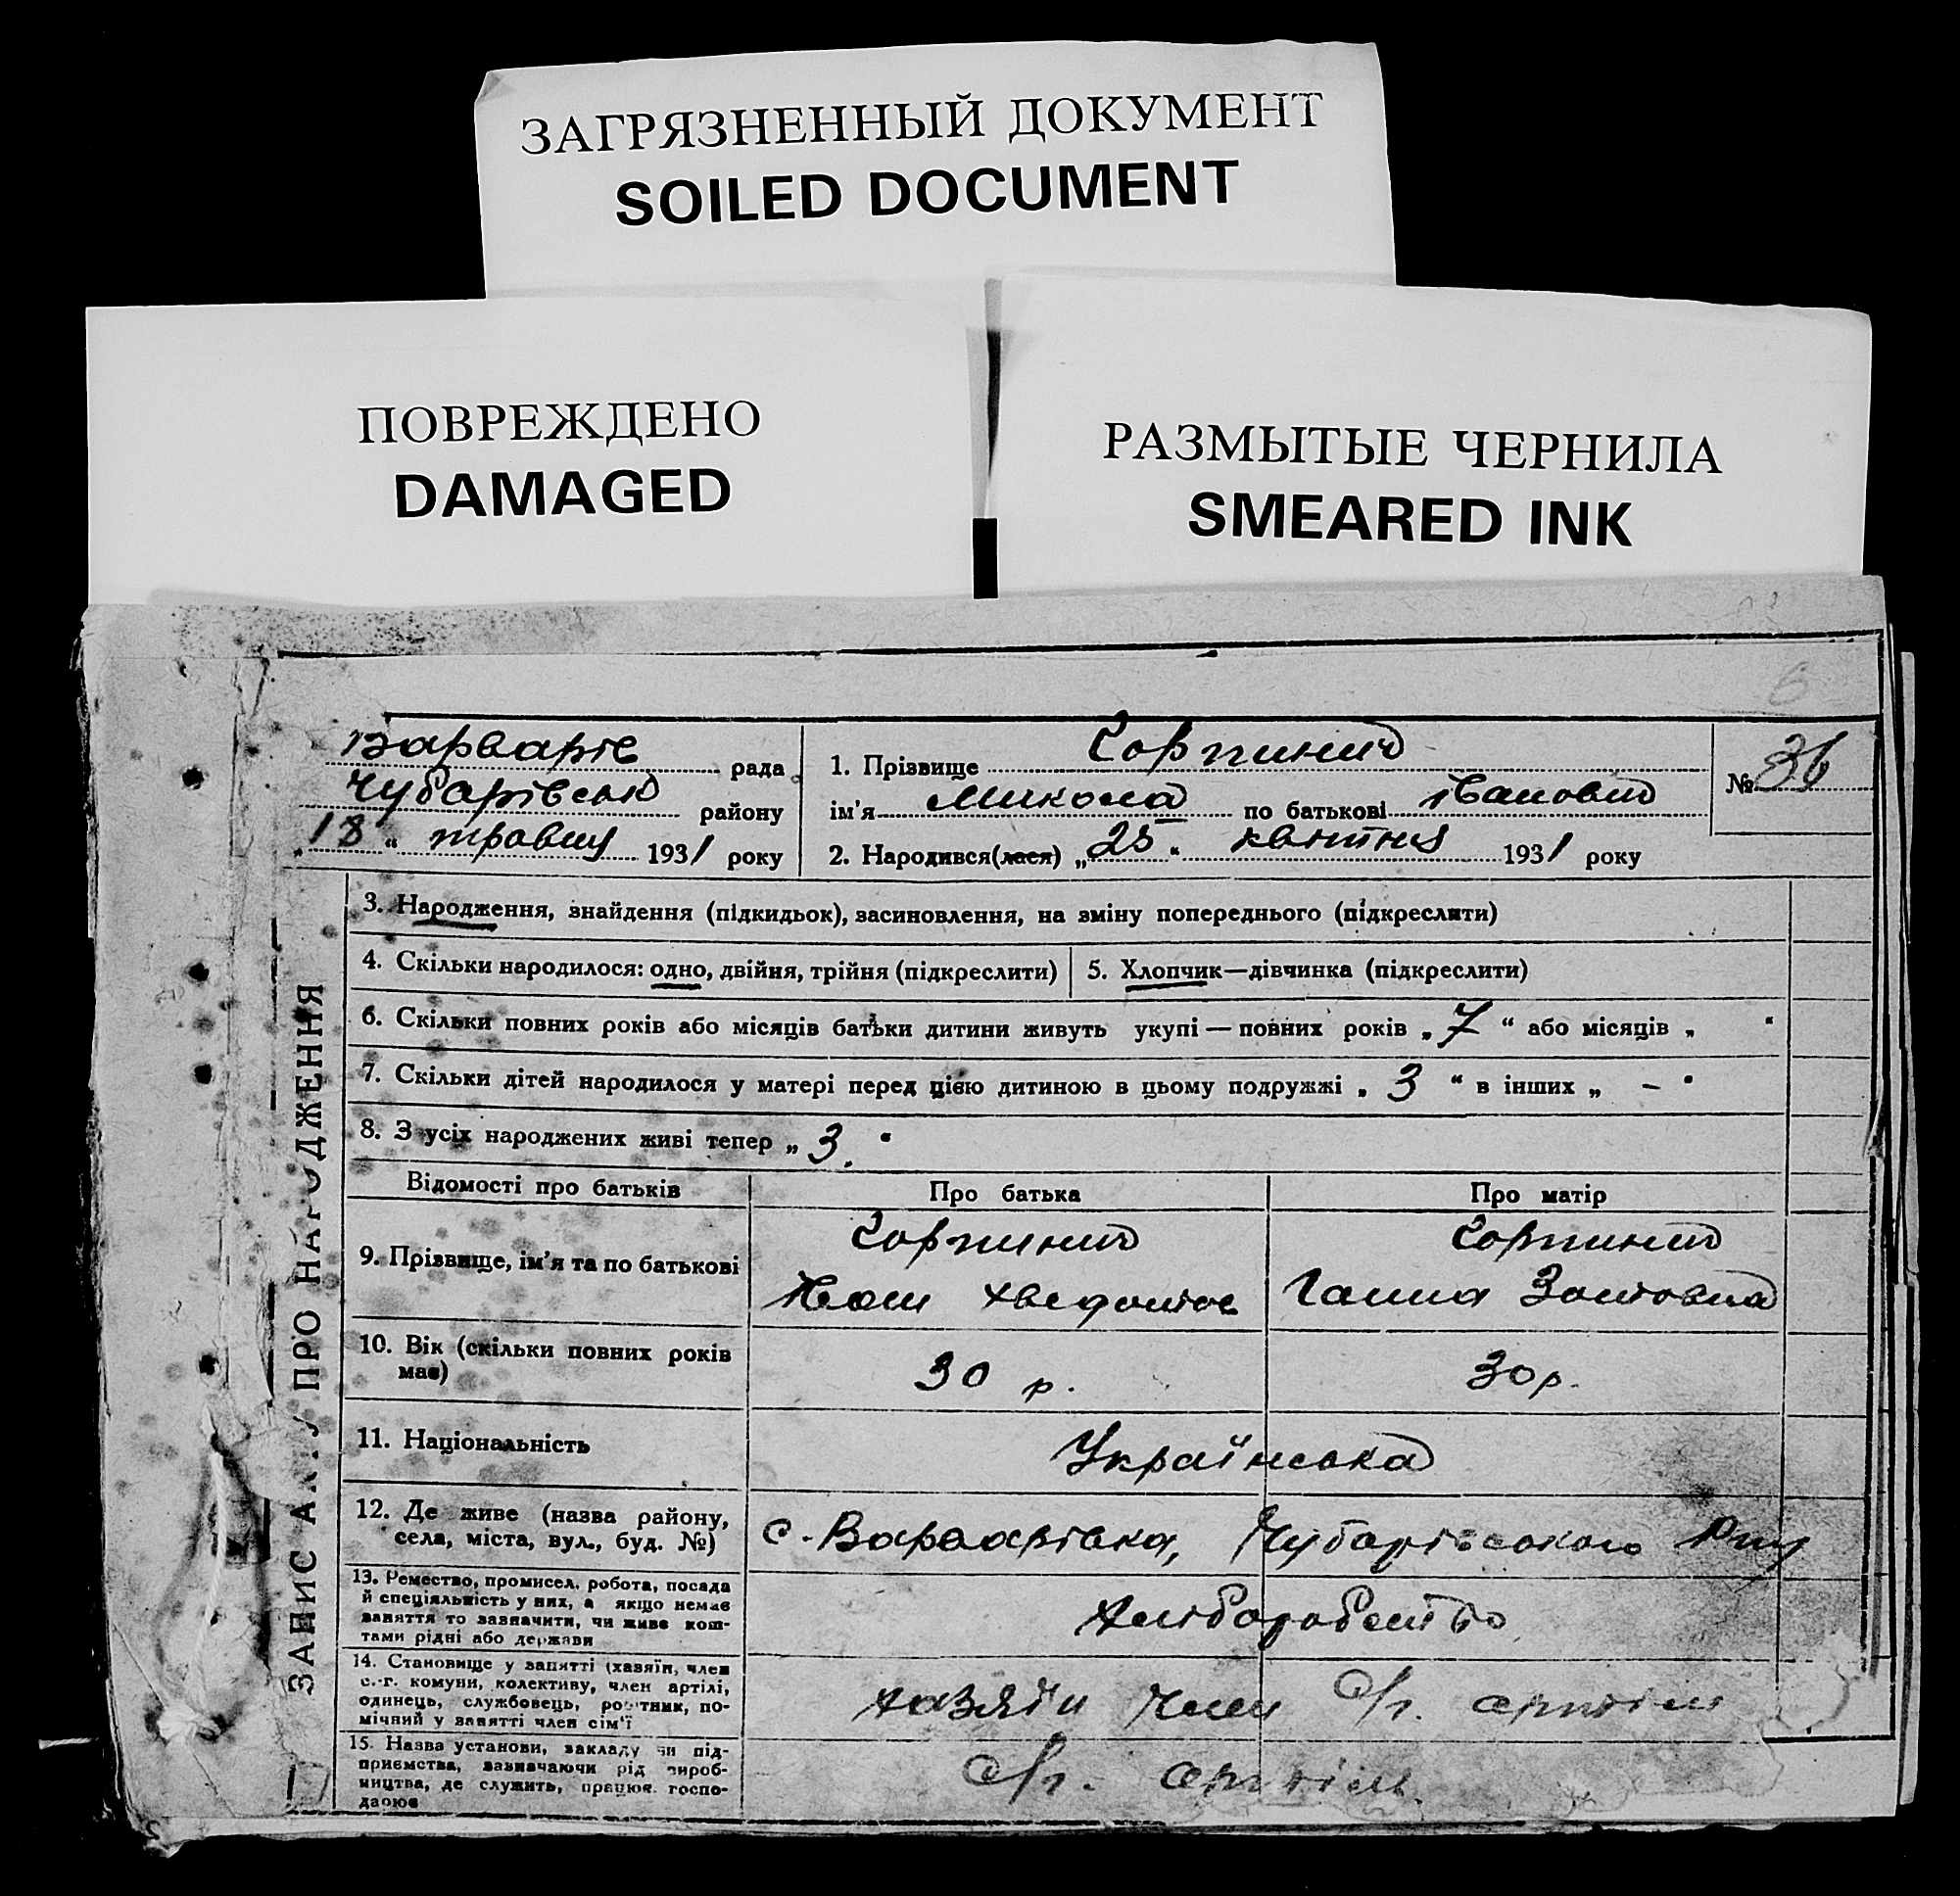 ЗАГРЯЗНЕННЫЙ ДОКУМЕНТ
SOILED DOCUMENT
ПОВРЕЖДЕНО
DAMAGED
РАЗМЫТЫЕ ЧЕРНИЛА
SMEARED INK
6
Варварів рада
Чубарівськ району
„18“ травня 1931 року
1. Прізвище
ім'я Микола по батькові Іванович
2. Народився(лася) „25“ квітня 1931 року
№ 36
ЗАПИС АКТУ ПРО НАРОДЖЕННЯ
3. Народження, знайдення (підкидьок), засиновлення, на зміну попереднього (підкреслити)
4. Скільки народилося: одно, двійня, трійня (підкреслити)
5. Хлопчик—дівчинка (підкреслити)
6. Скільки повних років або місяців батьки дитини живуть укупі — повних років „7“ або місяців „ “
7. Скільки дітей народилося у матері перед цією дитиною в цьому подружжі „3“ в інших „ – “
8. З усіх народжених живі тепер „3.“
Відомості про батьків
Про батька
Про матір
9. Прізвище, ім'я та по батькові
Іван
Ганна
10. Вік (скільки повних років
має)
30 р.
30 р.
11. Національність
Українська
12. Де живе (назва району,
села, міста, вул., буд. №)
с. Варварівка, Чубарівського р-ну
13. Ремество, промисел, робота, посада
й спеціяльність у них, а якщо немає
заняття то зазначити, чи живе кош-
тами рідні або держави
хліборобство
14. Становище у занятті (хазяїн, член
с.-г. комуни, колективу, член артілі,
одинець, службовець, робітник, по-
мічний у занятті член сім'ї
хазяїн член с/г. артіли
15. Назва установи, закладу чи під-
приємства, зазначаючи рід вироб-
ництва, де служить, працює, госпо-
дарює
с/г. артіль.